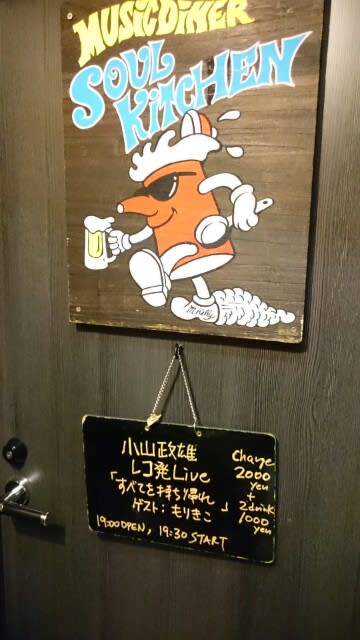 MUSIC DINER
SOUL
KITCHEN
小山政雄
レコ発Live
「すべてを持ち帰れ」
ゲスト：もりきこ
19:00 OPEN, 19:30 START
Charge
2000
yen
+
2drink
1000
yen